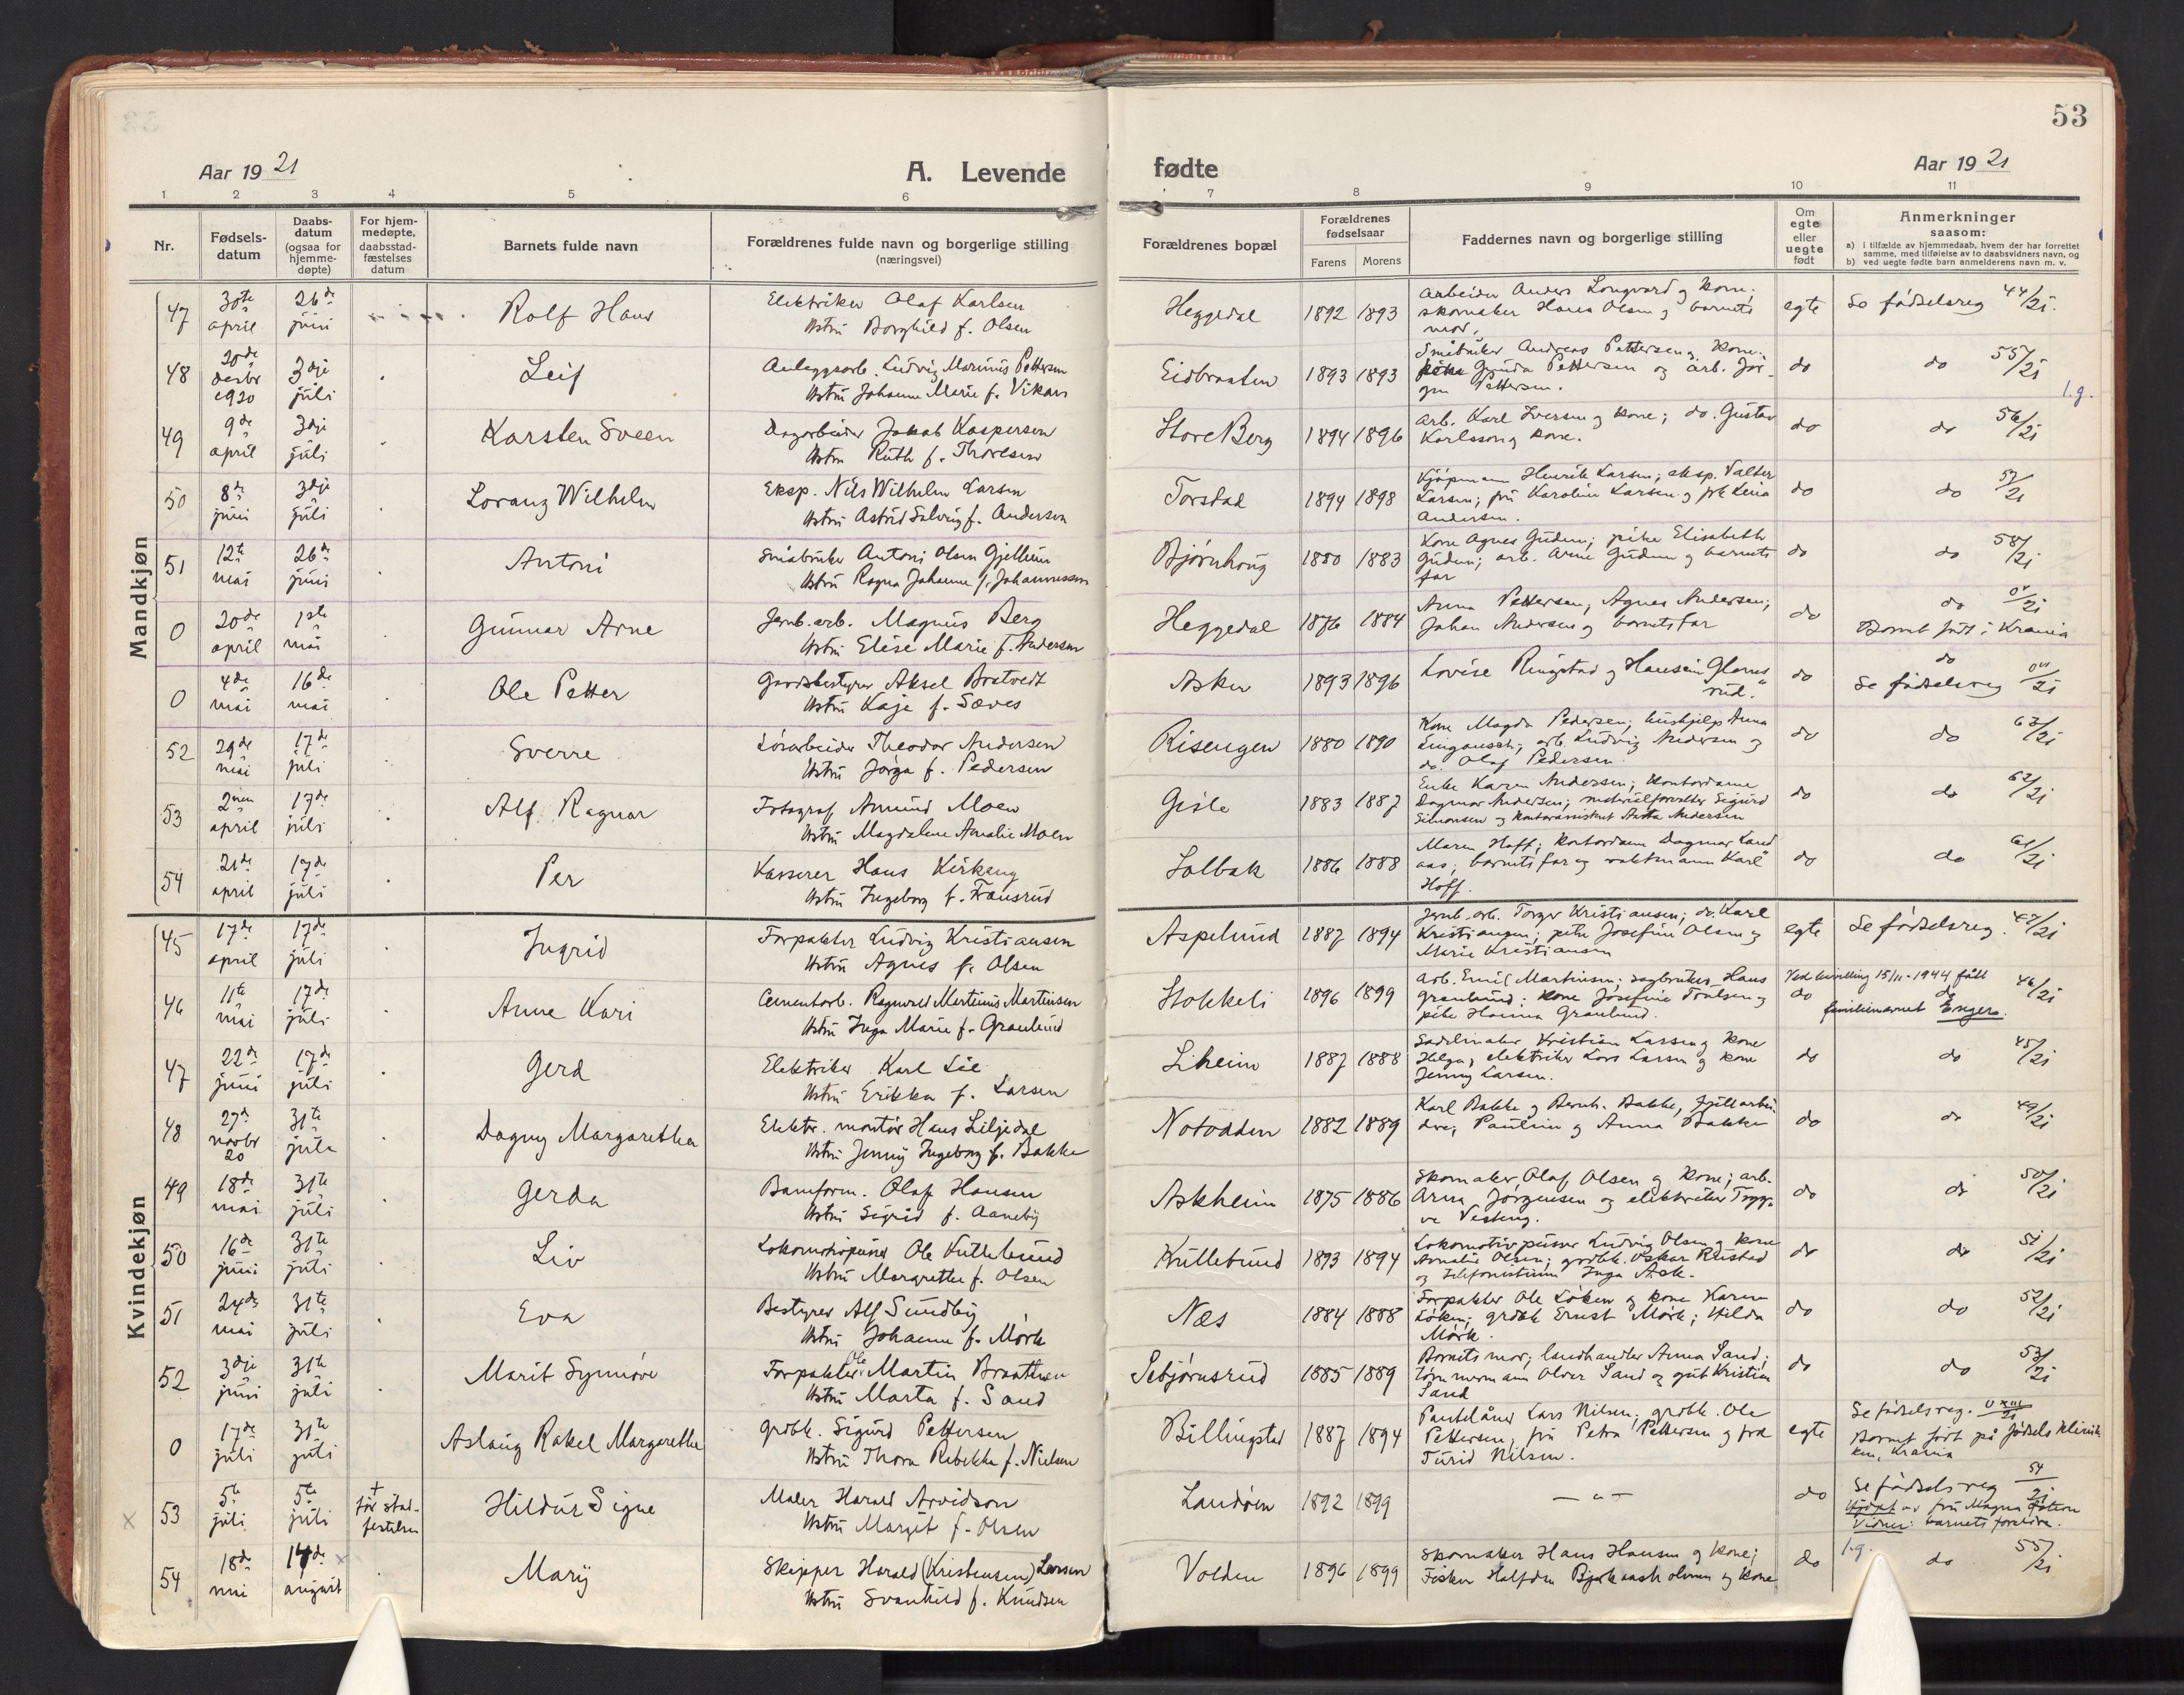 53
Aar 1921 A. Levende fødte Aar 1921
1 2 3 4 5 6 7 8 9 10 11
Nr.
Fødsels-
datum
Daabs-
datum
(ogsaa for
hjemme-
døpte)
For hjem-
medøpte,
daabsstad-
fæstelses
datum
Barnets fulde navn
Forældrenes fulde navn og borgerlige stilling
(næringsvei)
Forældrenes bopæl
Forældrenes
fødselsaar
Farens Morens
Faddernes navn og borgerlige stilling
Om
egte
eller
uegte
født
Anmerkninger
saasom:
a) i tilfælde av hjemmedaab, hvem der har forrettet
samme, med tilføielse av to daabsvidners navn, og
b) ved uegte fødte barn anmelderens navn m. v.
Mandkjøn
47 30te april 26de juni Rolf Hans
Elektriker Olaf Karlsen
Hstru Borghild f. Olsen
Heggedal 1892 1893
Arbeider Anders Longvard og kone;
skomaker Hans Olsen og barnets
mor.
egte Se fødselsreg 44/21.
48 20de desbr 1920 3dje juli Leif
Anleggsarb. Ludvig Marinius Pettersen
Hstru Johanne Marie f. Vikan
Eidbraaten 1893 1893
Småbruker Andreas Pettersen og kone;
Gunda Pettersen og arb. Jør-
gen Pettersen.
do do 55/21
1.g.
49 9de april 3dje juli Karsten Sveen
Dagarbeider Jakob Kaspersen
Hstru Ruth f. Thoresen
Store Berg 1894 1896
Arb. Karl Iversen og kone; do. Gustav
Karlsson og kone.
do do 56/21
50 8de juni 3dje juli Loranz Wilhelm
Eksp. Nils Wilhelm Larsen
Hstru Astrid Solveig f. Andersen
Torstad 1894 1898
Kjøpmann Henrik Larsen; eksp. Valter
Larsen; fru Karoline Larsen og frk Lina
Andersen.
do do 57/21
51 12te mai 26de juni Antoni
Småbruker Antoni Olsen Gjellum
Hstru Ragna Johanne f. Johannessen
Bjørnhaug 1880 1883
Kone Agnes Gudem; pike Elisabeth
Gudem; arb. Arne Gudem og barnets
far
do do 58/21
0 20de april 1ste mai Gunnar Arne
Jernb.arb. Magnus Berg
Hstru Elise Marie f. Andersen
Heggedal 1876 1884
Anna Pettersen, Agnes Andersen;
Johan Andersen og barnets far
do do
Barnet født i Krania
0 4de mai 16de mai Ole Petter
Gardsbestyrer Aksel Bratvedt
Hstru Kaja f. Sæves
Asker 1893 1896
Lovise Ringstad og Hansein Gloms
rud.
do do
Se fødselsreg
52 29de mai 17de juli Sverre
Løsarbeider Theodor Andersen
Hstru Jørga f. Pedersen
Risengen 1880 1890
Kone Magda Pedersen; hushjelp Anna
arb. Ludvig Andersen og
do Olaf Pedersen.
do do 63/21
53 2nen april 17de juli Alf Ragnar
Fotograf Amund Moen
Hstru Magdalene Amalie Moen
Gisle 1883 1887
Enke Karen Andersen; kontordame
Dagmar Andersen; materialforvalter Sigurd
Simonsen og kontorassistent Asta Andersen
do do 62/21
54 21de april 17de juli Per
Kasserer Hans Kirkeng
Hstru Ingeborg f. Fransrud
Solbak 1886 1888
Maren Hoff; kontordame Dagmar Land
aas; barnets far og vaktmann Karl
Hoff.
do do 61/21
Kvindekjøn
45 17de april 17de juli Ingrid
Forpakter Ludvig Kristiansen
Hstru Agnes f. Olsen
Aspelund 1887 1894
Jernb.arb. Torger Kristiansen; do. Karl
Kristiansen; pike Josefine Olsen og
Marie Kristiansen
egte Se fødselsreg. 47/21
46 11te mai 17de juli Anne Kari
Cementarb. Ragnvald Martinius Martinsen
Hstru Inga Marie f. Granlund
Stokkeli 1896 1899
Arb. Emil Martinsen; sagbruker Hans
Granlund; kone Josefine Poulsen og
pike Hanna Granlund.
Ved bevilling 15/11-1944 fått
do do 46/21
familienavnet Enger.
47 22de juni 17de juli Gerd
Elektriker Karl Lie
Hstru Erikka f. Larsen
Liheim 1887 1888
Sadelmaker Kristian Larsen og kone
Helga; elektriker Lars Larsen og kone
Jenny Larsen.
do do 45/21
48 27de novbr 20 31te juli Dagny Margaretha
Elektr. montør Hans Liljedal
Hstru Jenny Ingeborg f. Bakke
Notodden 1882 1889
Karl Bakke og Bernh. Bakke, fjellarbei-
dere; Pauline og Anna Bakke
do do 49/21
49 18de mai 31te juli Gerda
Baneform. Olaf Hansen
Hstru Sigrid f. Aaneby
Askheim 1875 1886
Skomaker Olaf Olsen og kone; arb.
Arna Jørgensen og elektriker Tryg-
ve Vesteng.
do do 50/21
50 16de juni 31te juli Liv
Lokomotivpusser Ole Kullebund
Hstru Margrethe f. Olsen
Kullebund 1893 1894
Lokomotivpusser Ludvig Olsen og kone
Amalie Olsen; grdbr. Oskar Rustad
og telefonistinne Inga Ask.
do do 51/21
51 24de mai 31te juli Eva
Bestyrer Alf Sundby
Hstru Johanne f. Mørk
Næs 1884 1888
Forpakter Ole Løken og kone Karen
Løken; grdbr Ernst Mørk; Hilda
Mørk.
do do 52/21
52 3dje juni 31te juli Marit Synnøve
Forpakter Ole Martin Braathen
Hstru Marta f. Sand
Sebjørnsrud 1885 1889
Barnets mor; landhandler Anna Sand;
tømmermann Olver Sand og gut Kristian
Sand
do do 53/21
0 17de juli 31te juli Aslaug Rakel Margarethe
Grdbr. Sigurd Pettersen
Hstru Thora Rebekka f. Nielsen
Billingstad 1887 1894
Pantelåner Lars Nilsen; grdbr. Ole
Pettersen; fru Petra Pettersen og frk
Turid Nilsen.
egte Se fødselsreg.
Barnet født på fødselsklinik
ken, Krania
x 53 5te juli 5te juli † før stad-
festelsen Hildur Signe
Maler Harald Arvidson
Hstru Margit f. Olsen
Landøen 1892 1899 — " —
do Se fødselsreg 54/21
Hjdøpt av fru Magna
Vidner: barnets foreldre.
54 18de mai 14de august Mary
Skipper Harald (Kristensen) Larsen
Hstru Svanhild f. Knudsen
Volden 1896 1899
Skomaker Hans Hansen og kone;
Fisker Halfdan og kone
do 1.g. do 55/21